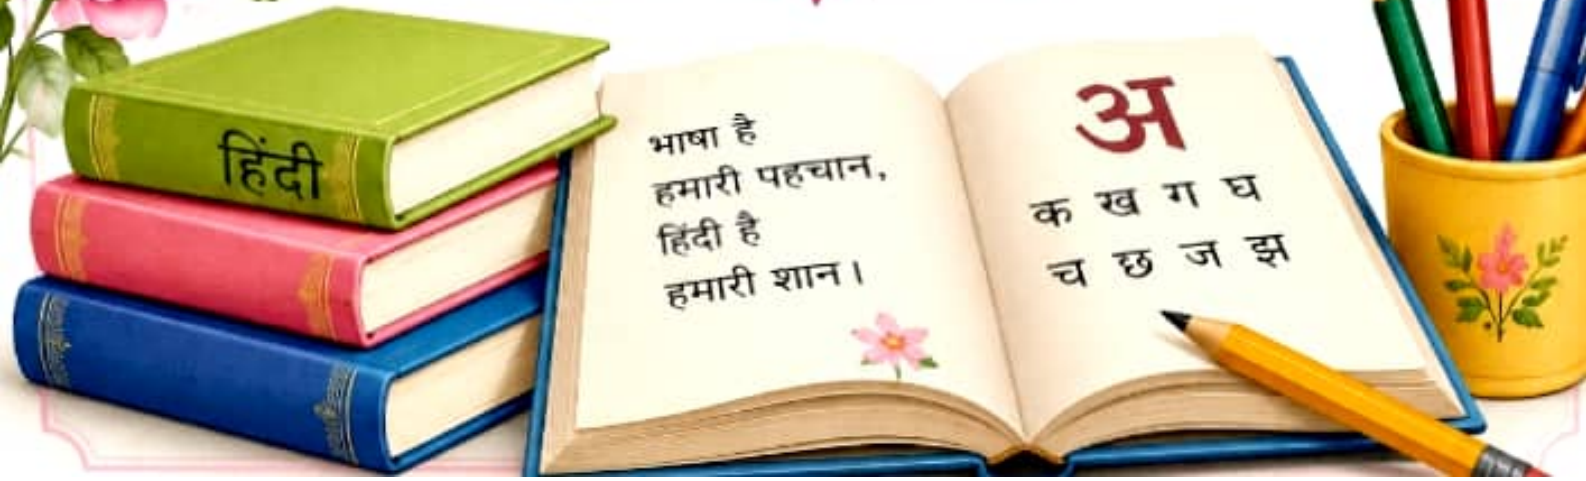 हिंदी
भाषा है
हमारी पहचान,
हिंदी है
हमारी शान।
अ
क ख ग घ
च छ ज झ